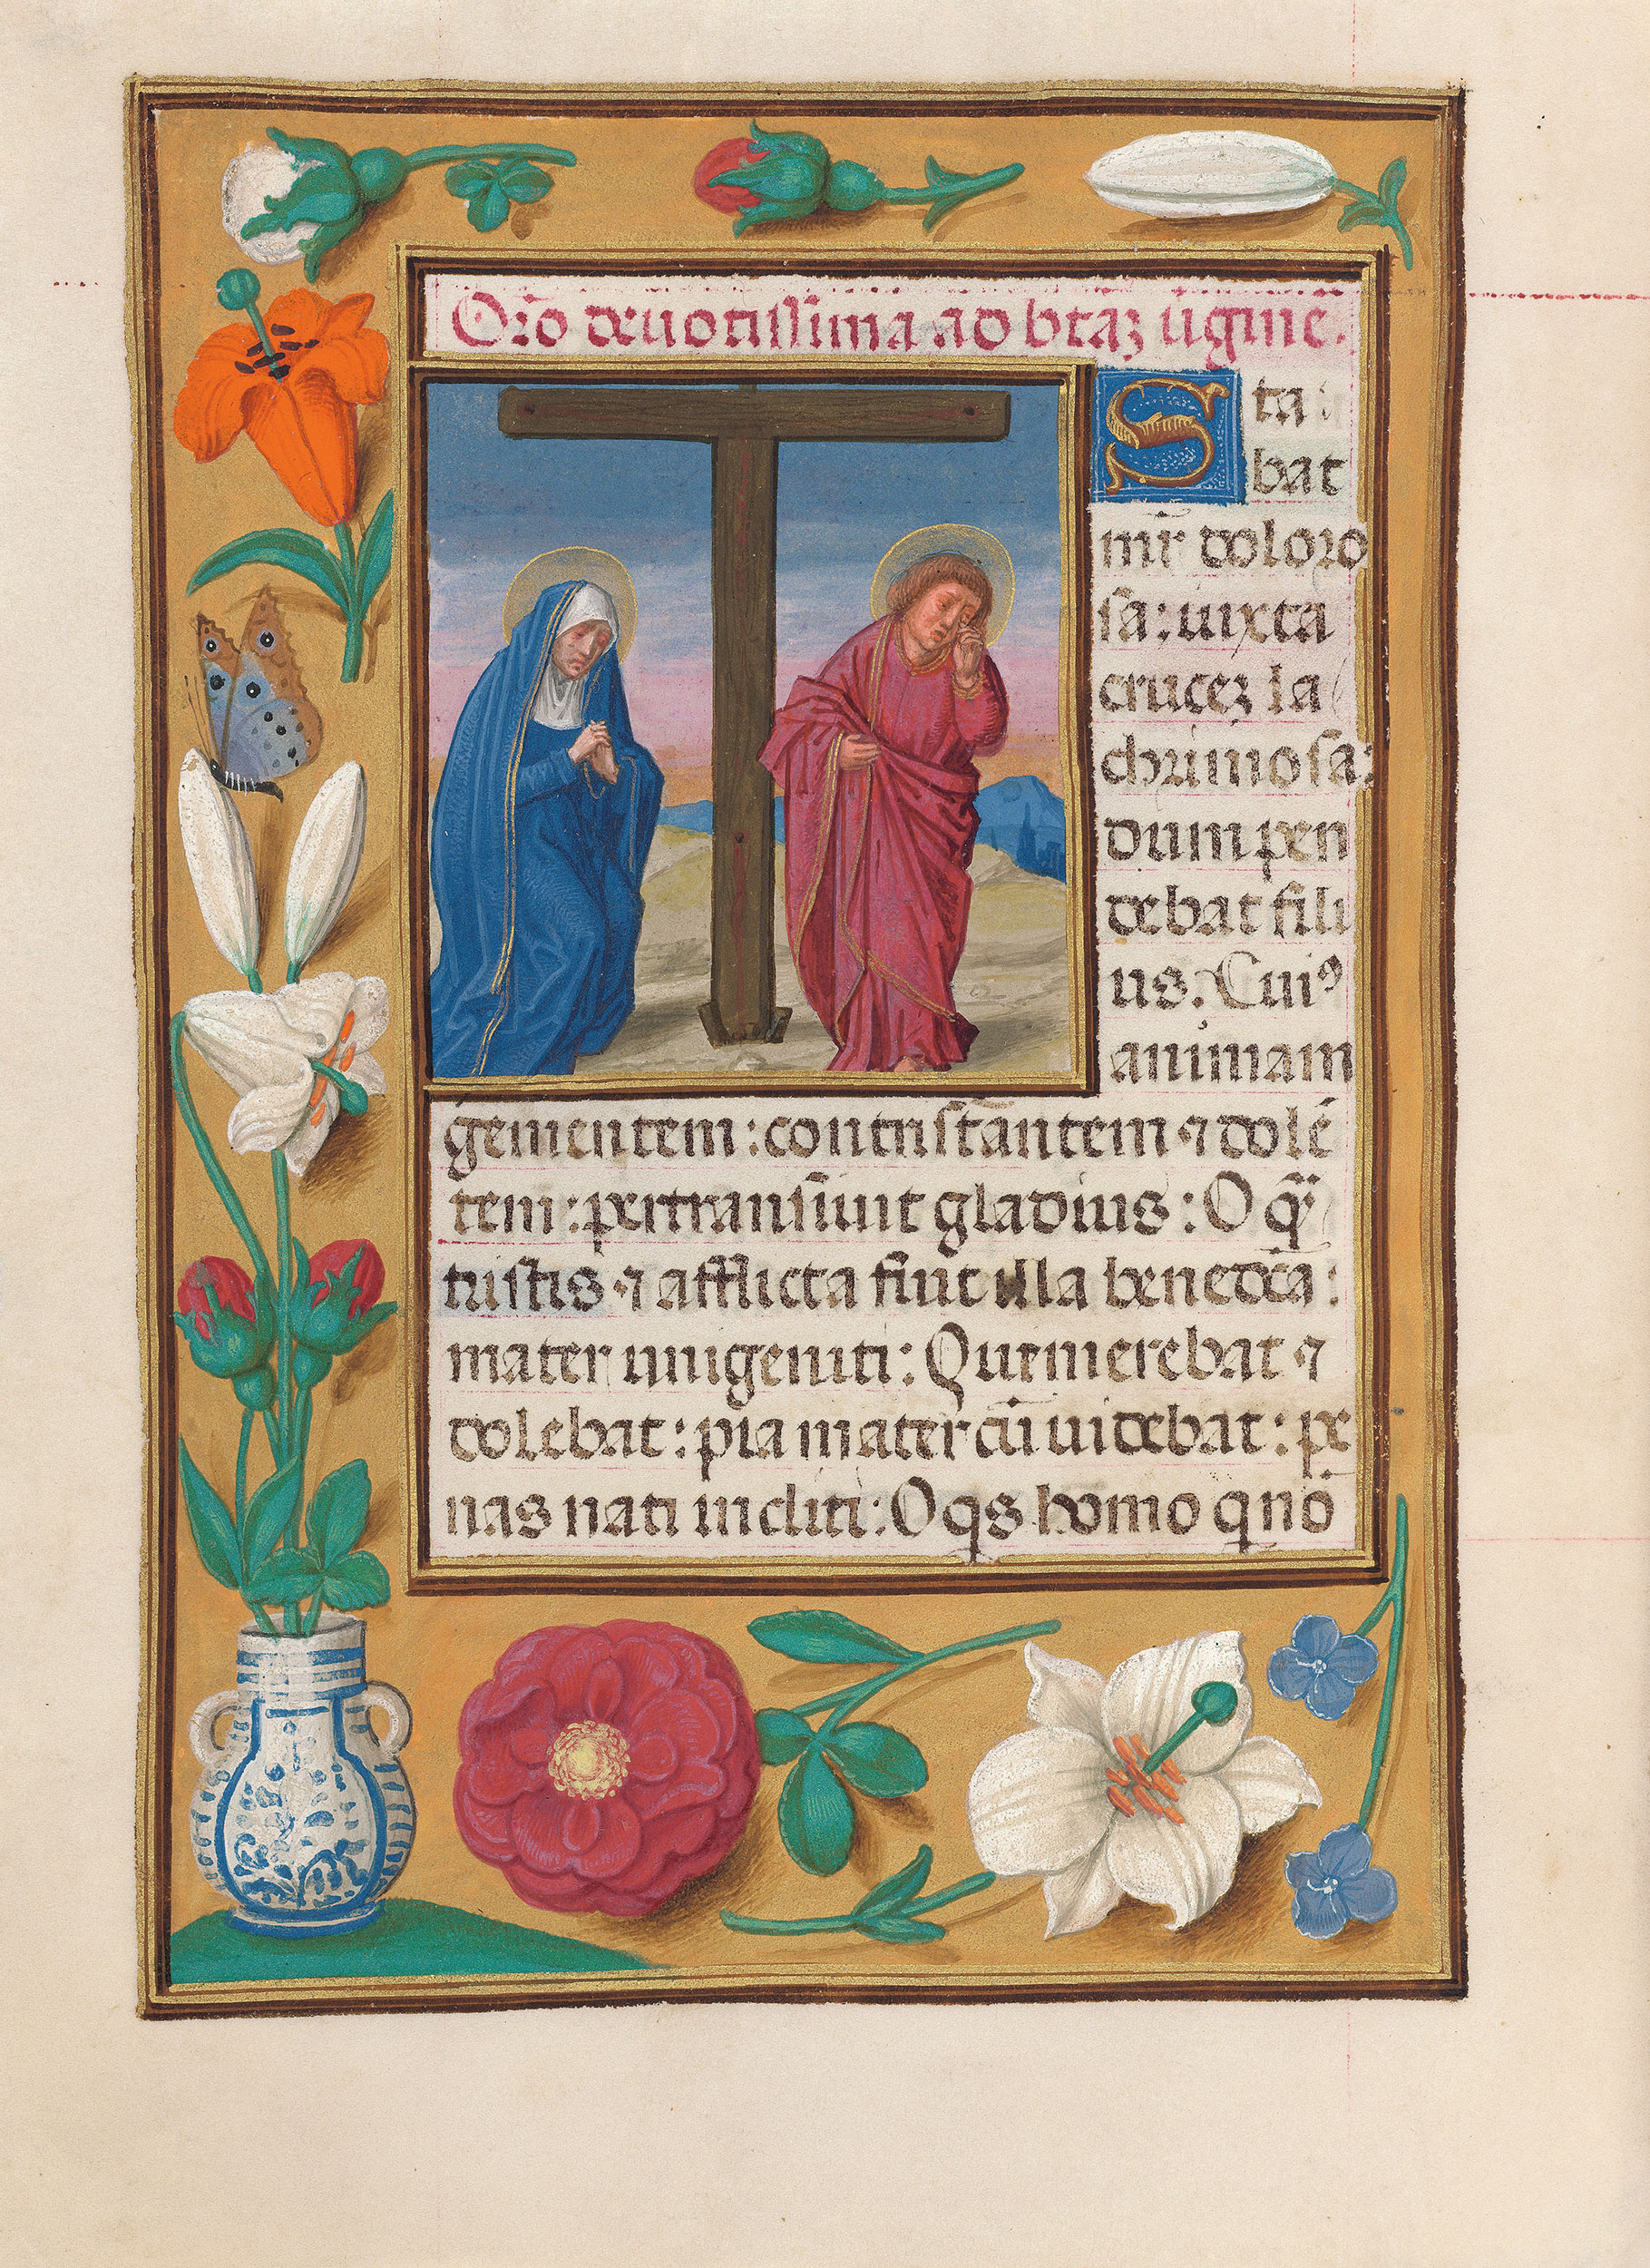 Or̄o deuotissima ad btāꝫ ūgine᷑.
Sta
bat
mr̄ doloro
sa: iuxta
cruceꝫ la
chrimosa:
dum pen
debat fili
us. Cuiꝯ
animam
gementem: contristantem ⁊ dolē
tem: pertransiuit gladius: O qͣ̄
tristis ⁊ afflicta fiut illa benedc̄a:
mater unigeniti: Que merebat ⁊
dolebat: pia mater cū uidebat: pe
nas nati incliti: O qs homo q nō